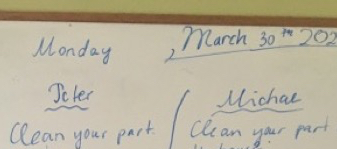 Monday , March 30th 202
Peter Michae
Clean your part. Clean your part